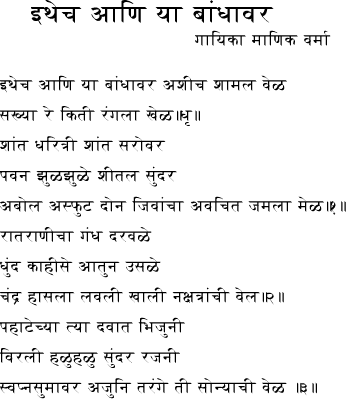 इथेच आणि या बांधावर
गायिका माणिक वर्मा
इथेच आणि या बांधावर अशीच शामल वेळ
सख्या रे किती रंगला खेळ॥धृ॥
शांत धरित्री शांत सरोवर
पवन झुळझुळे शीतल सुंदर
अबोल अस्फुट दोन जिवांचा अवचित जमला मेळ॥१॥
रातराणीचा गंध दरवळे
धुंद काहीसे आतुन उसळे
चंद्र हासला लवली खाली नक्षत्रांची वेल॥२॥
पहाटेच्या त्या दवात भिजुनी
विरली हळुहळु सुंदर रजनी
स्वप्नसुमावर अजुनि तरंगे ती सोन्याची वेळ ॥३॥